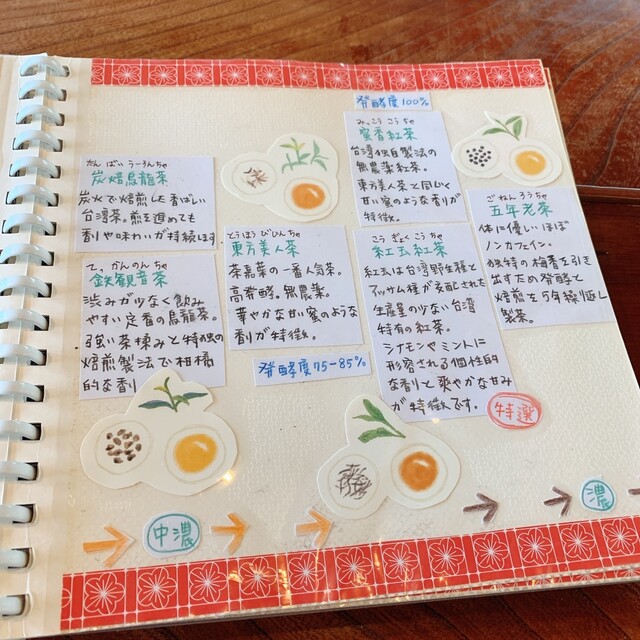 たん ばい うーろんちゃ
炭焙烏龍茶
炭火で焙煎した香ばしい
台湾茶。煎を進めても
香りや味わいが持続します
て。かんのんちゃ
鉄観音茶
渋みが少なく飲み
やすい定番の烏龍茶。
強い茶揉みと特殊の
焙煎製法で柑橘
的な香り
とうほう びじんちゃ
東方美人茶
茶嘉葉の一番人気茶。
高発酵。無農薬。
華やかな甘い蜜のような
香りが特徴。
発酵度75-85%
発酵度100%
みっこう こうちゃ
蜜香紅茶
台湾独自製法の
無農薬紅茶。
東方美人茶と同じく
甘い蜜のような香りが
特徴。
こう ぎょく こうちゃ
紅玉紅茶
紅玉は台湾野生種と
アッサム種が交配された
生産量の少ない台湾
特有の紅茶。
シナモンやミントに
形容される個性的
な香りと爽やかな甘み
が特徴です。
ごねんろうちゃ
五年老茶
体に優しいほぼ
ノンカフェイン。
独特の梅香を引き
出すため発酵と
焙煎を5年繰り返し
製茶。
特選
→ 中濃 → → → → 濃